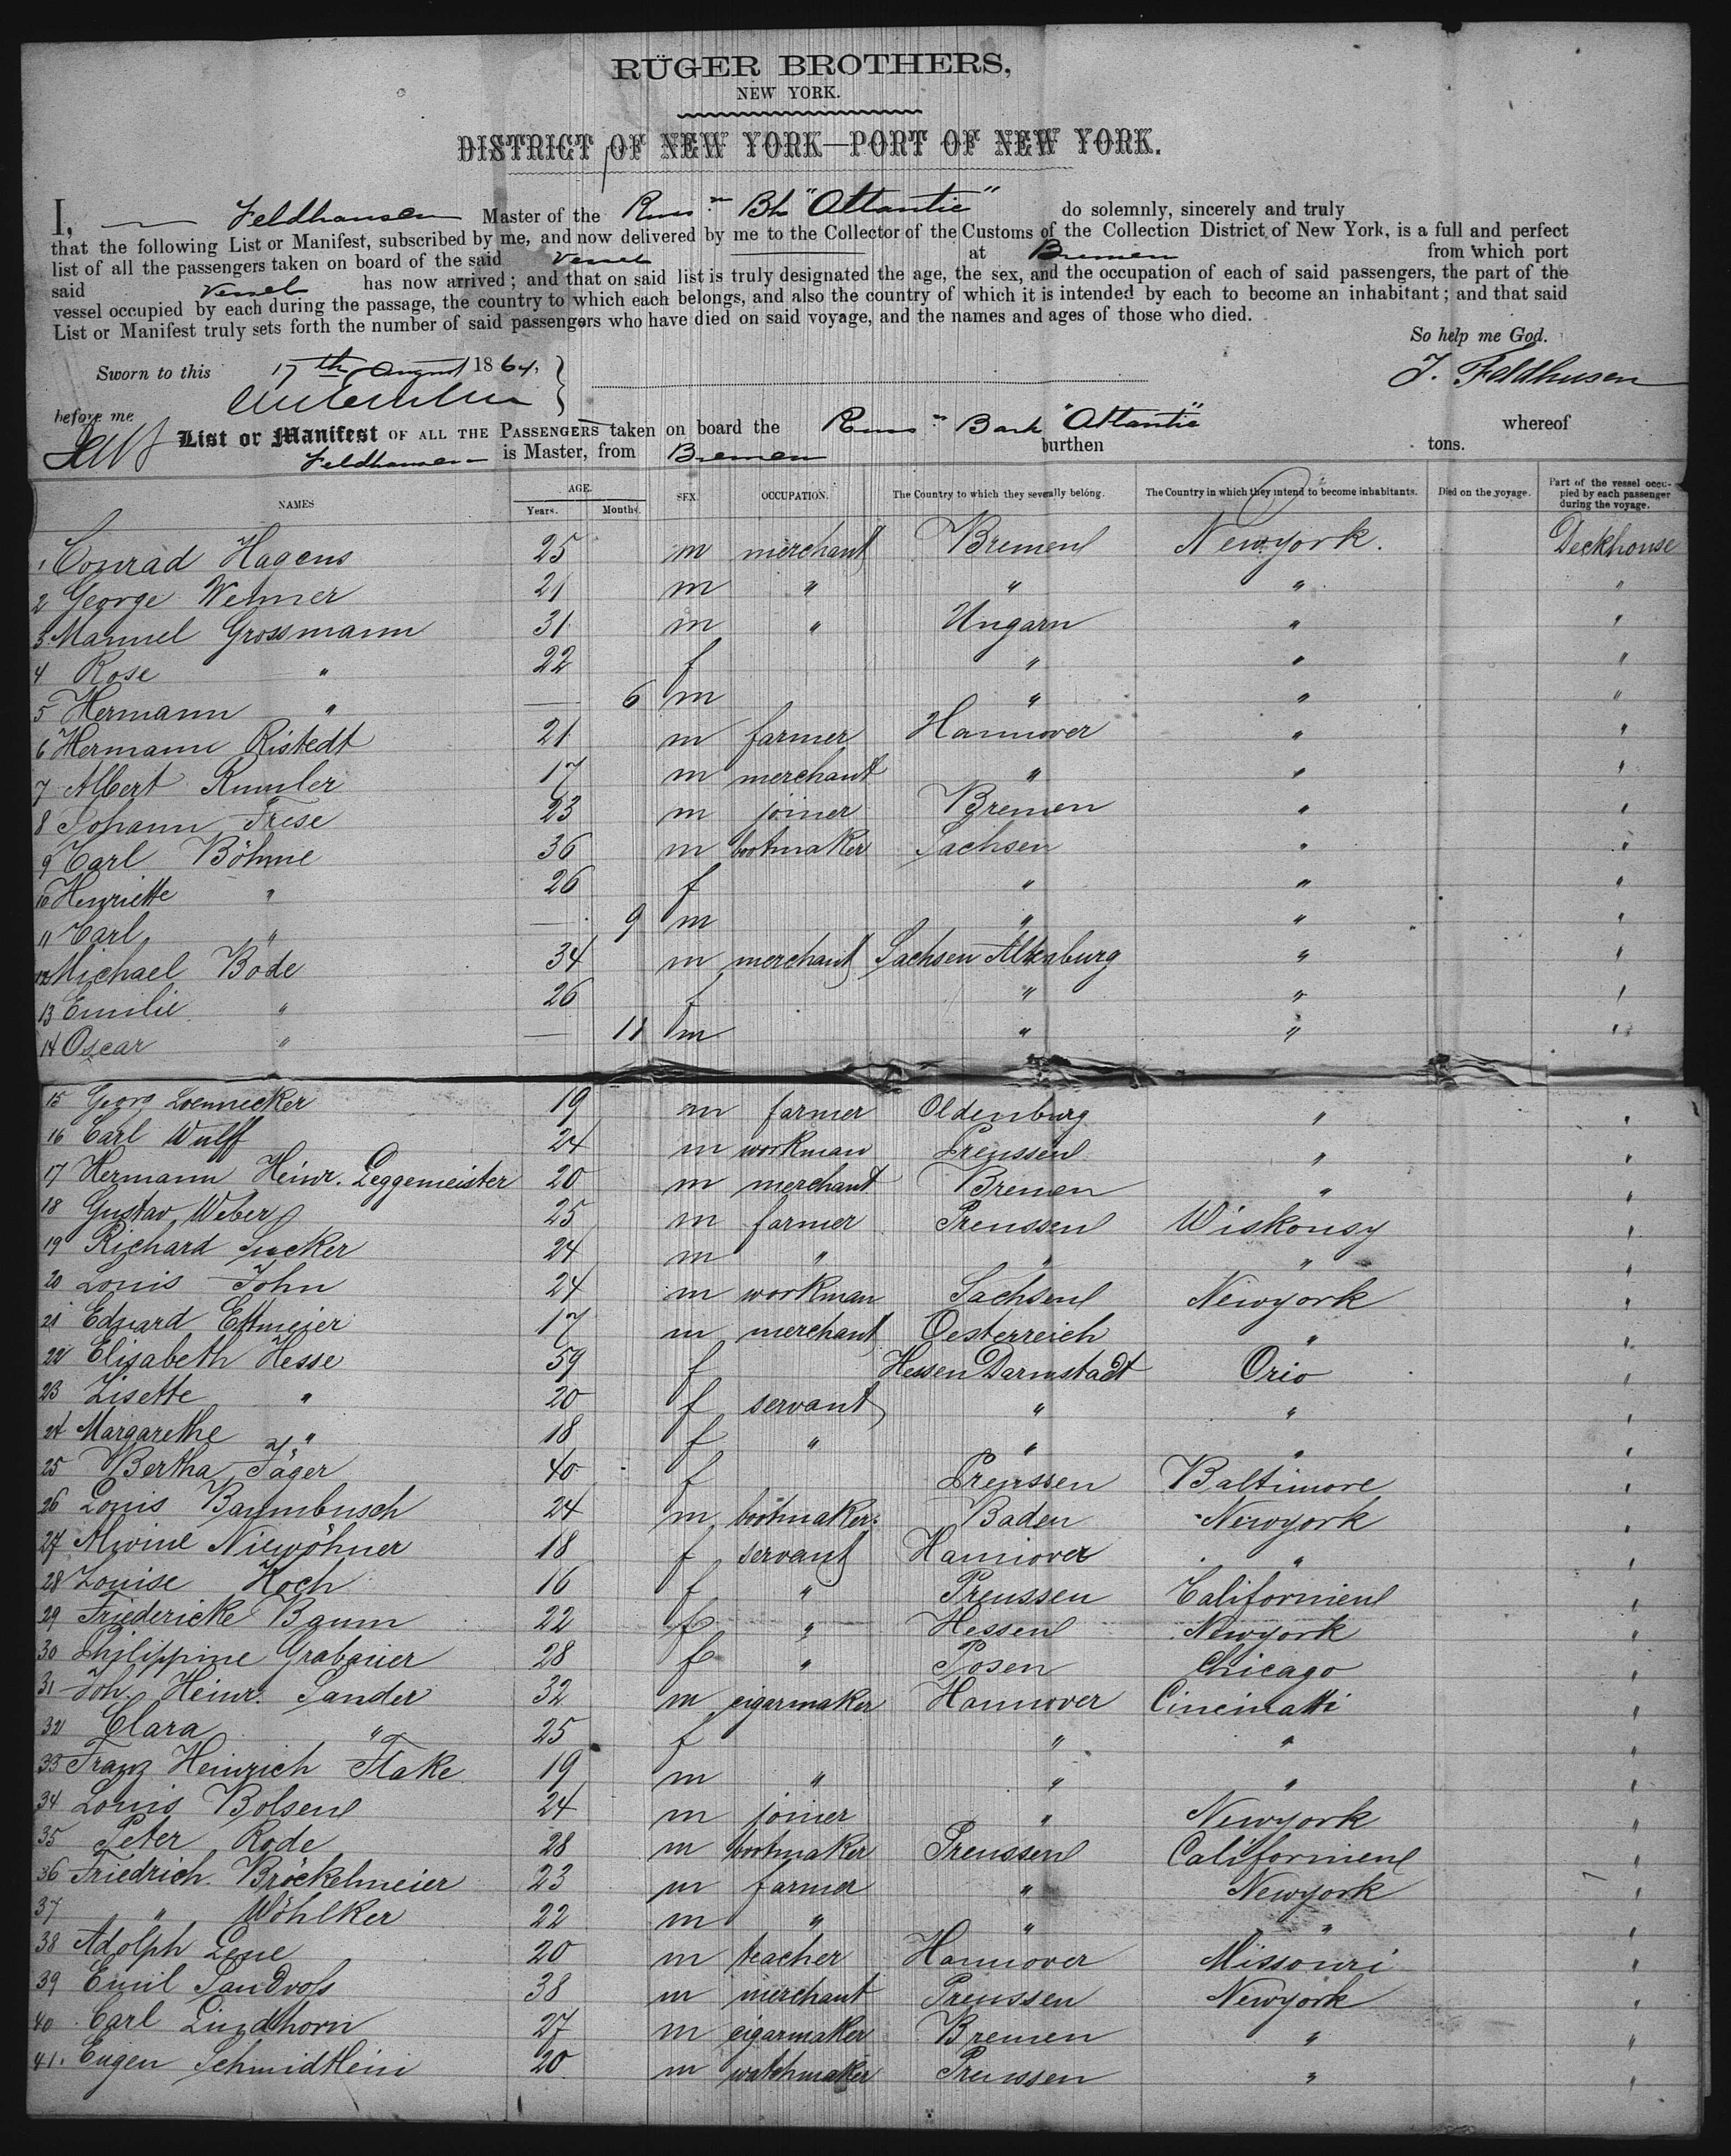 RÜGER BROTHERS,
NEW YORK.
DISTRICT OF NEW YORK—PORT OF NEW YORK.
I, Feldhausen Master of the Russn Bk "Atlantic" do solemnly, sincerely and truly
that the following List or Manifest, subscribed by me, and now delivered by me to the Collector of the Customs of the Collection District of New York, is a full and perfect
list of all the passengers taken on board of the said Vessel at Bremen from which port
said Vessel has now arrived; and that on said list is truly designated the age, the sex, and the occupation of each of said passengers, the part of the
vessel occupied by each during the passage, the country to which each belongs, and also the country of which it is intended by each to become an inhabitant; and that said
List or Manifest truly sets forth the number of said passengers who have died on said voyage, and the names and ages of those who died.
So help me God.
Sworn to this 17th August 1864, J. Feldhusen
before me
List or Manifest OF ALL THE PASSENGERS taken on board the Russn Bark "Atlantic" whereof
Feldhausen is Master, from Bremen burthen tons.
NAMES AGE. Years. Months. SEX. OCCUPATION. The Country to which they severally belong. The Country in which they intend to become inhabitants. Died on the voyage. Part of the vessel occupied by each passenger during the voyage.
1 Conrad Hagens 25 m merchant Bremen Newyork. Deckhouse
2 George Wehmer 21 m " " " "
3 Manuel Grossmann 31 m " Ungarn " "
4 Rose " 22 f " " "
5 Hermann " — 6 m " " "
6 Hermann Ristedt 21 m farmer Hannover " "
7 Albert Rumler 17 m merchant " " "
8 Johann Frese 23 m joiner Bremen " "
9 Carl Böhme 36 m bootmaker Sachsen " "
10 Henriette " 26 f " " "
11 Carl " — 9 m " " "
12 Michael Bode 34 m merchant Sachsen Altenburg " "
13 Emilie " 26 f " " "
14 Oscar " — 11 m " " "
15 Georg Loennecker 19 m farmer Oldenburg " "
16 Carl Wulff 24 m workman Preussen " "
17 Hermann Heinr. Leggemeister 20 m merchant Bremen " "
18 Gustav Weber 25 m farmer Preussen Wiskonsy "
19 Richard Sucker 24 m " " " "
20 Louis John 24 m workman Sachsen Newyork "
21 Eduard Ettmeier 17 m merchant Oesterreich " "
22 Elisabeth Hesse 59 f Hessen Darmstadt Orio "
23 Lisette " 20 f servant " " "
24 Margarethe " 18 f " " " "
25 Bertha Jäger 40 f Preussen Baltimore "
26 Louis Baumbusch 24 m bootmaker Baden Newyork "
27 Alwine Niewöhner 18 f servant Hannover " "
28 Louise Koch 16 f " Preussen Californien "
29 Friedericke Baum 22 f " Hessen Newyork "
30 Philippine Grabauer 28 f " Posen Chicago "
31 Joh. Heinr. Sander 32 m cigarmaker Hannover Cincinatti "
32 Clara " 25 f " " "
33 Franz Heinrich Flake 19 m " " " "
34 Louis Bolsen 24 m joiner " Newyork "
35 Peter Rode 28 m bootmaker Preussen Californien "
36 Friedrich Bröckelmeier 23 m farmer " Newyork "
37 " Wöhlker 22 m " " " "
38 Adolph Lene 20 m teacher Hannover Missouri "
39 Emil Sandvoss 38 m merchant Preussen Newyork "
40 Carl Lindthorn 27 m cigarmaker Bremen " "
41. Eugen Schmidtlein 20 m watchmaker Preussen " "